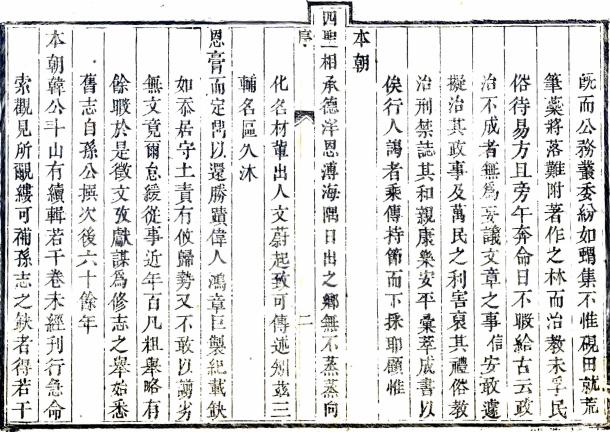 旣而公務叢委紛如蝟集不惟硯田就荒
筆蘂將落難附著作之林而治教未孚民
俗待易方且旁午奔命日不暇給古云政
治不成者無爲妄議文章之事信安敢遽
擬治其政事及萬民之利害裒其禮俗教
治刑禁誌其和親康樂安平彙萃成書以
俟行人謁者乘傳持節而下採耶顧惟
本朝
四聖相承德澤恩溥海隅日出之鄉無不蒸蒸向
序
二
化名材輩出人文蔚起致可傳述矧茲三
輔名區久沐
恩膏而定以還勝蹟偉人鴻章巨製紀載缺
如忝居守土責有攸歸勢又不敢以謭劣
無文竟爾怠緩從事近年百凡粗舉略有
餘暇於是徵文攷獻謀爲修志之舉始悉
舊志自孫公撰次後六十餘年
本朝韓公斗山有續輯若干卷未經刊行急命
索觀見所覼縷可補孫志之缺者得若干